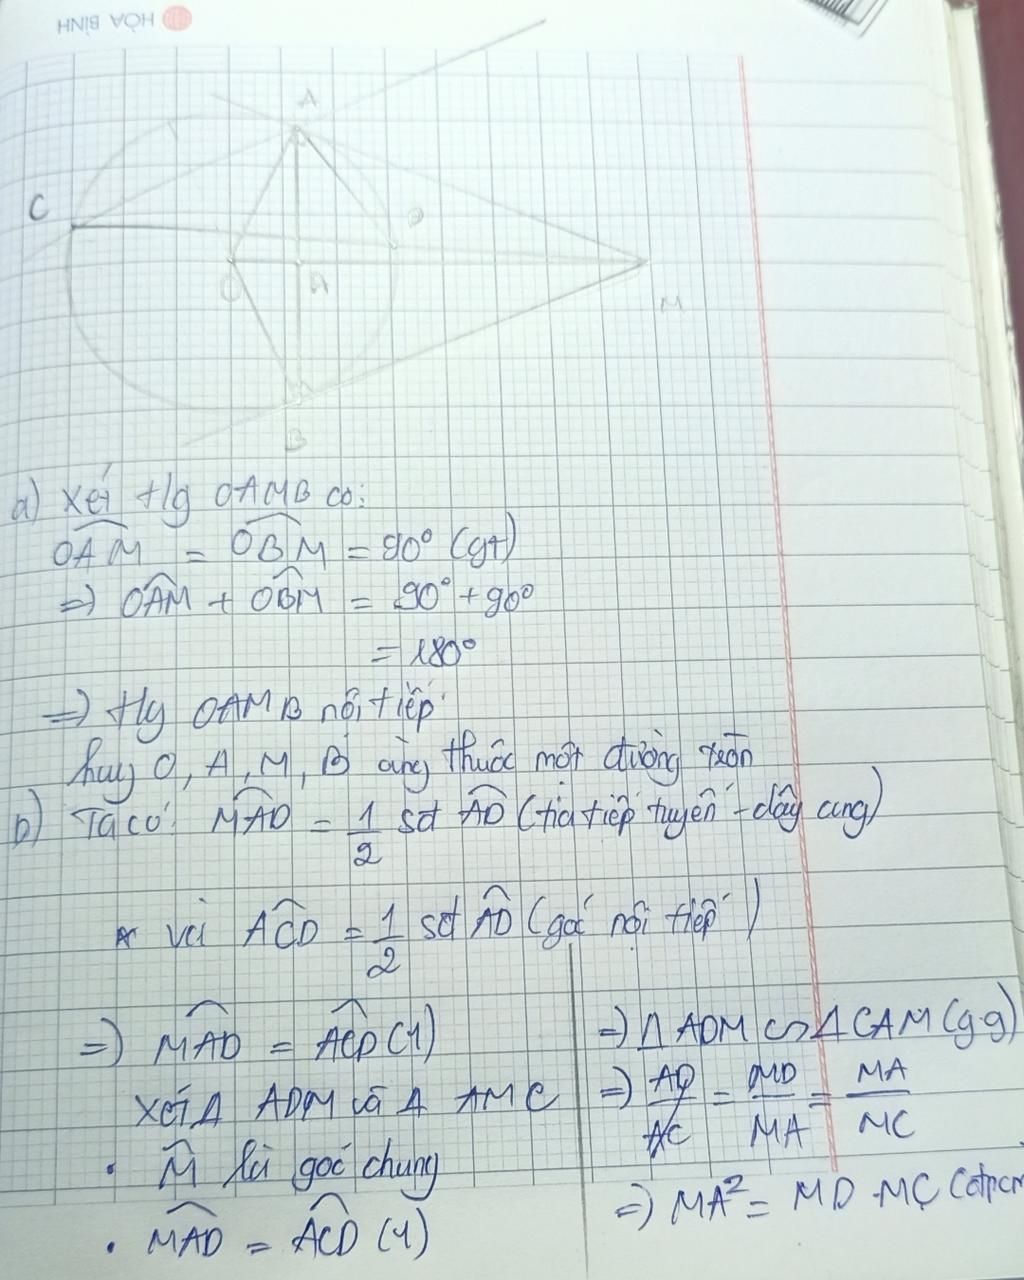 HÒA BÌNH
A
C
D
O
A
M
B
a) Xét tg OAMB có:
OAM = OBM = 90° (gt)
=> OAM + OBM = 90° + 90°
= 180°
=> tg OAMB nội tiếp
hay O, A, M, B cùng thuộc một đường tròn
b) Ta có: MAD = 1/2 sđ AD (tia tiếp tuyến - dây cung)
và ACD = 1/2 sđ AD (góc nội tiếp)
=> MAD = ACD (1)
Xét Δ ADM và Δ AMC
• M là góc chung
• MAD = ACD (1)
=> Δ ADM ∽ Δ CAM (g.g)
=> AD/AC = MD/MA = MA/MC
=> MA² = MD . MC (đpcm